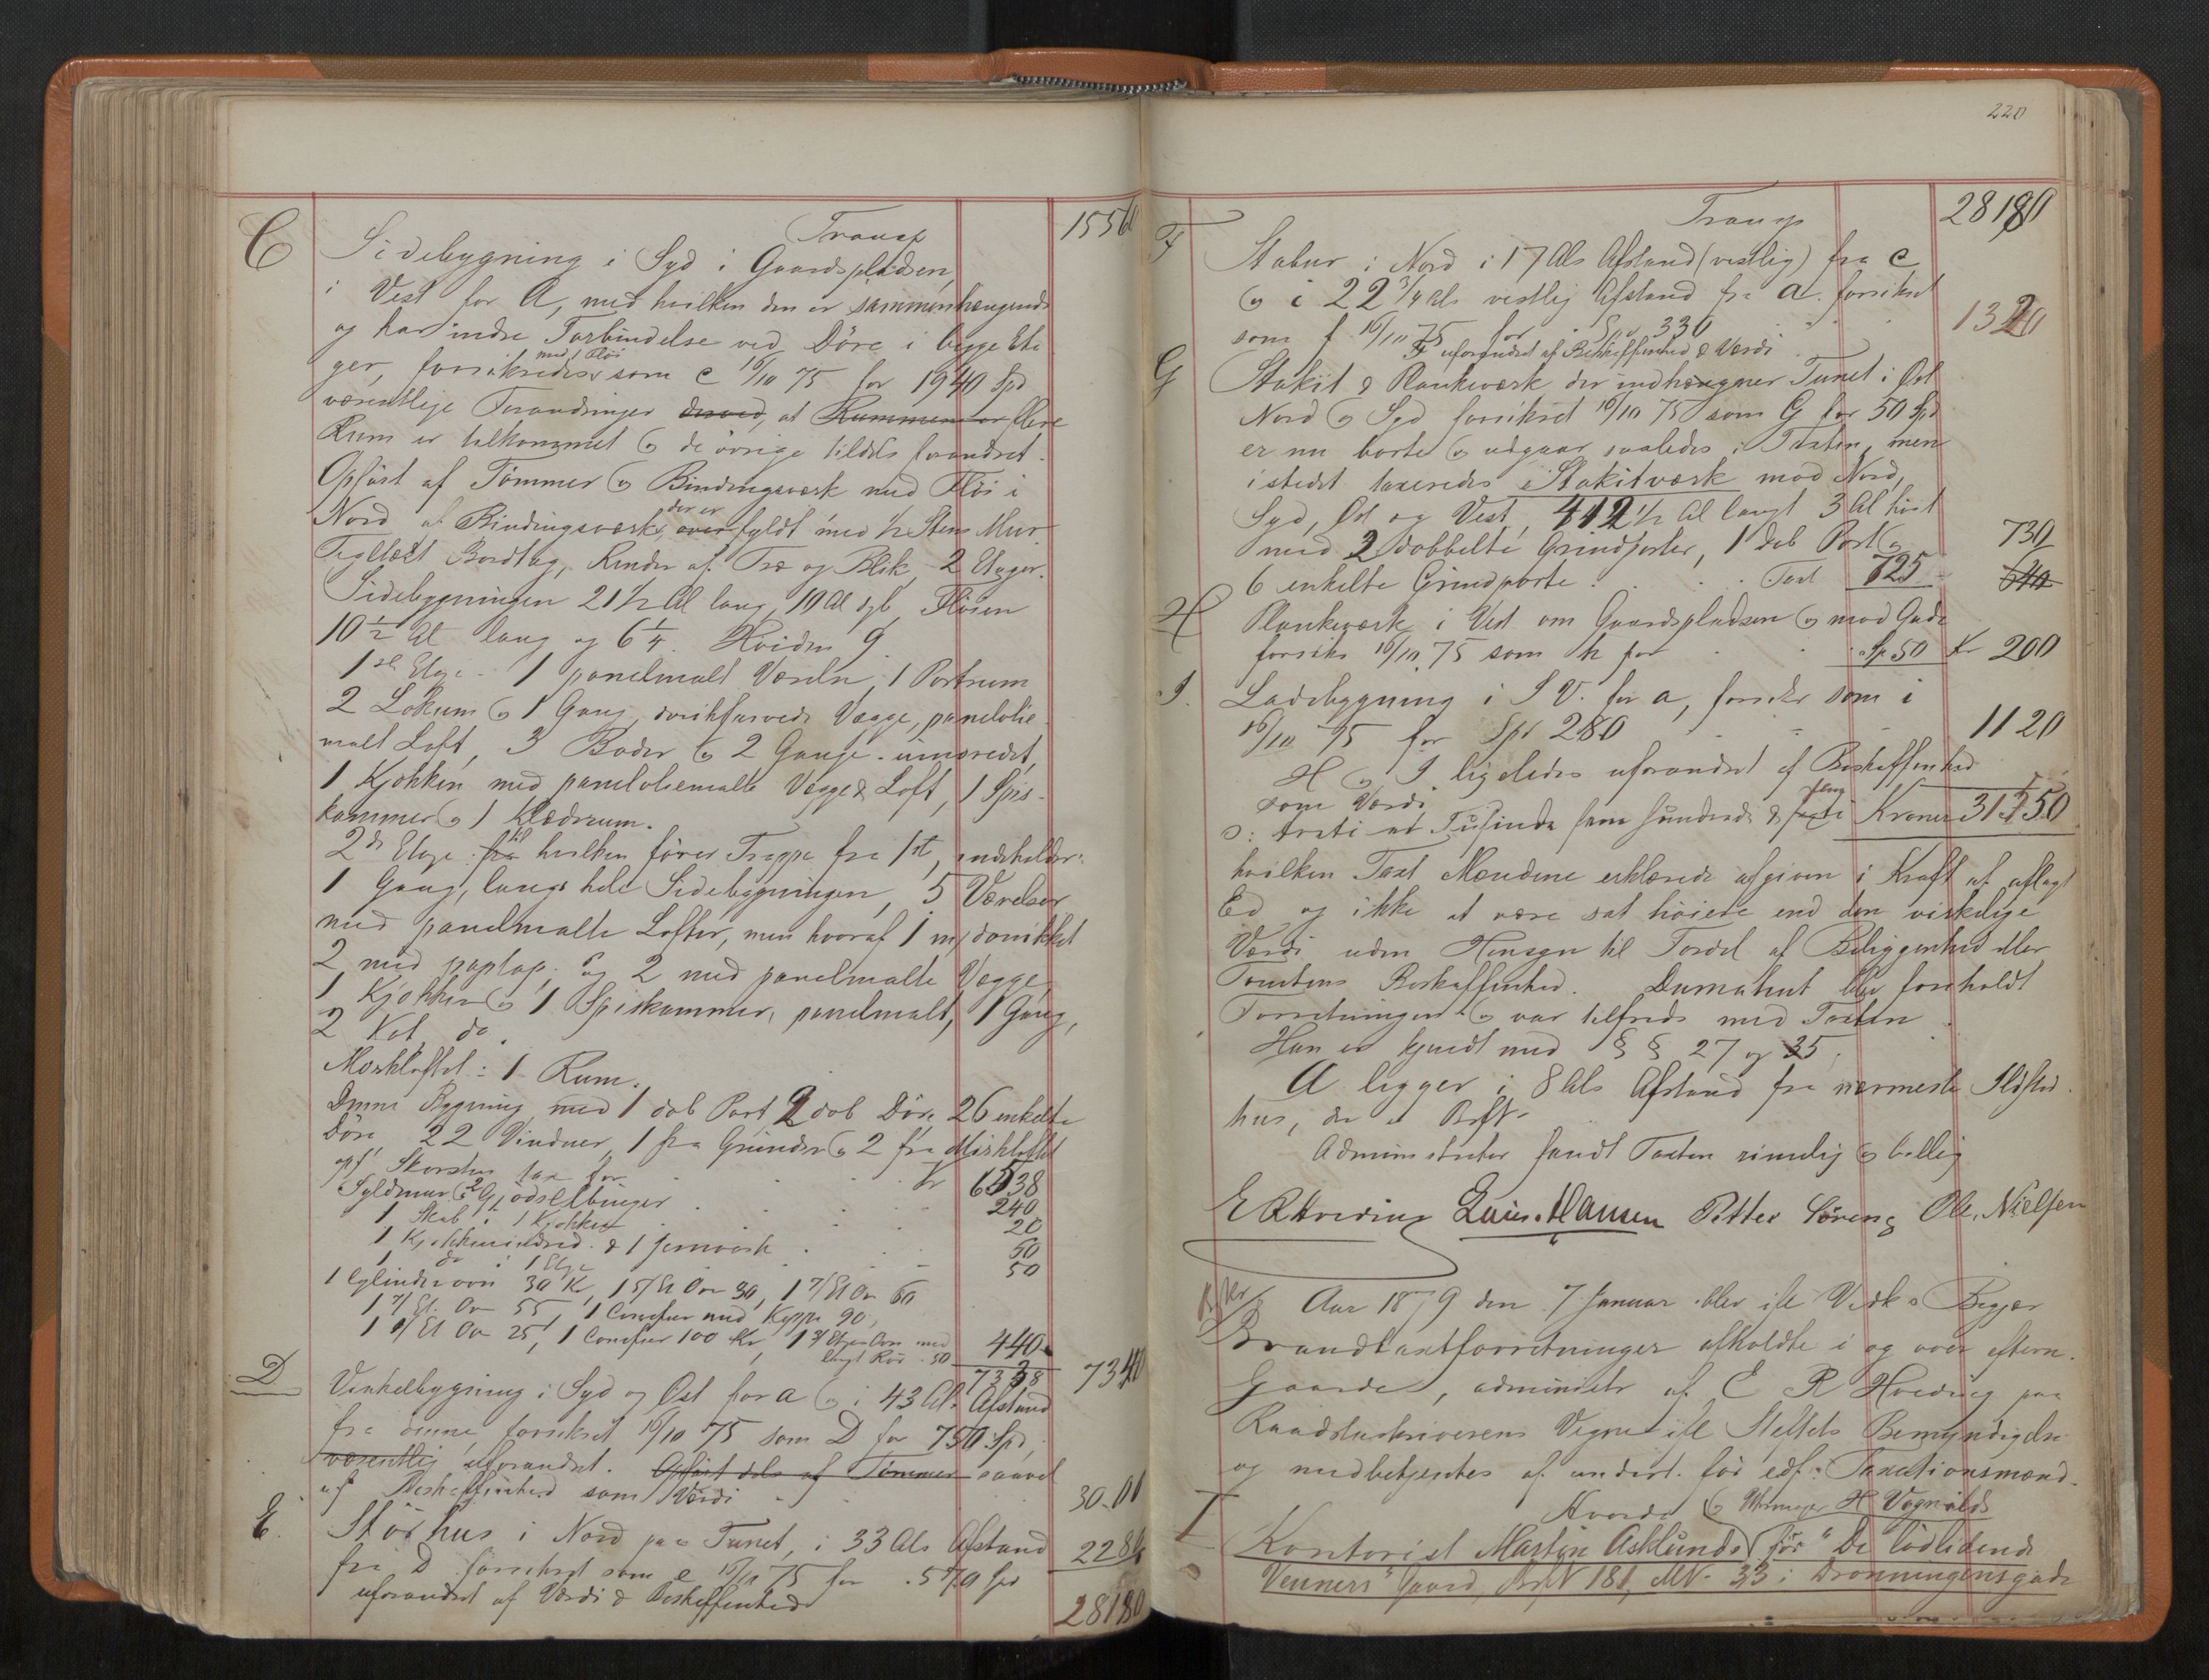 Transp 15560
C Sidebygning i Syd i Gaardspladsen,
i Vest for A, med hvilken den er sammenhængende
og har indre Forbindelse ved Döre i begge Eta
ger, forsikredes med Flöi som C 16/10 75 for 1940 Spd
væsentlige Forandringer derved, at Rummene er flere
Rum er tilkommet og de övrige tildels forandret.
Opfört af Tömmer og Bindingsværk med Flöi i
Nord af Bindingsværk, der er over fyldt med 1/2 Stens Mur.
Tegltækt Bordtag, Render af Træ og Blik, 2 Etager.
Sidebygningen 21 1/2 Al lang, 10 Al dyb, Flöien
10 1/2 Al lang og 6 1/4. Höiden 9
1ste Etage. 1 panelmalt Værelse, 1 Portrum
2 Lokum og 1 Gang, vægge, panelolie
malt Loft, 3 Boder og 2 Gange uinnredet,
1 Kjökken med paneloliemalte Vægge & Loft, 1 Spis-
kammer og 1 Klædrum.
2de Etage, fra til hvilken förer Trappe fra 1ste, indeholder:
1 Gang, langs hele Sidebygningen, 5 Værelser
med panelmalte Lofter, men hvoraf 1 m/
2 med paptap. og 2 med panelmalte Vægge
1 Kjökken og 1 Spiskammer, panelmalt, 1 Gang,
2 Kot do.
Mörkloftet: 1 Rum.
Denne Bygning med 1 dob Port, 2 dob Döre, 26 enkelte
Döre, 22 Vinduer, 1 fra Grunden og 2 fra Mörkloftet
opf. Skorsten tax for Kr 6538
Syldmur & 2 Gjödselbinger 240
1 Skab i 1 Kjökken 20
1 Kjökkenindred. & 1 Jernvask 50
1 do i 1 Etge 50
1 Cylinderovn 30 Kr, 1 5/Et Ovn 30, 1 7/Et Ovn 60
1 7/Et. Ovn 55, 1 Comfur med Kappe 90,
1 Et Ovn 25, 1 Comfur 100 Kr, 1 3/Etages Ovn med
langt Rör 50 440
7338 7340
D Vinkelbygning i Syd og Öst for a og i 43 Als Afstand
fra denne, forsikret 16/10 75 som D for 750 Spd,
væsentlig uforandret. Opfört dels af Tömmer saavel
af Beskaffenhed som Værdi 3000
E. Störhus i Nord paa Tunet, i 33 Als Afstand
fra D forsikret som e 16/10 75 for 570 Spd 2280
uforandret af Værdi & Beskaffenhed
28180
220
Transp 28180
F Stabur i Nord i 17 Als Afstand (vestlig) fra C
og i 22 3/4 Als vestlig Afstand fra a. forsikret
som f 16/10 75 for Spd 330 1320
F uforandret af Beskaffenhed & Værdi
G Stakit & Plankeværk der indhegner Tunet i Öst
Nord og Syd forsikret 16/10 75 som G for 50 Spd
er nu borte og udgaar saaledes i Taxten, men
istedet taxeredes Stakitværk mod Nord,
Syd, Öst og Vest, 412 1/2 Al langt 3 Al höit
med 2 dobbelte Grindporter, 1 dob Port og 730
6 enkelte Grindporte. Taxt 725 640
H Plankeværk i Vest om Gaardspladsen og mod Gade
forsikr 16/10 75 som h for Sp 50 Kr 200
I. Ladebygning i S V. for a, forsikr som i
16/10 75 for Spd 280 1120
H og I ligeledes uforandret af Beskaffenhed
som Værdi
ɔ: tretti et Tusinde fem hundrede & femti Kroner 31550
hvilken Taxt Mændene erklærede afgiven i Kraft af aflagt
Ed og ikke at være sat höiere end den virkelige
Værdi uden Hensyn til Fordel af Beliggenhed eller
Tomtens Beskaffenhed. Damahut blev foreholdt
Forretningen og var tilfreds med Taxten.
Han er kjendt med §§ 27 og 35.
A ligger i 8 Als Afstand fra nærmeste Ildsted-
hus, der er
Administrator fandt Taxten rimelig og billig
E R Hveding Lauis. Hansen Petter Söreng Ole. Nielsen
Aar 1879 den 7 Januar blev ifl Vedk.s Begjær
Brandtaxtforretninger afholdte i og over eftern.
Gaarde, administr af E R Hveding paa
Raadstueskriverens Vegne ifl Stiftets Bemyndigelse
og medbetjentes af undert. för edf. Taxationsmænd.
Hveding og Uhrmager H Vognild
I Kontorist Martin Asklunds (för "De lidende
Venners" Gaard, BrN 181, MN. 33 i Dronningensgade